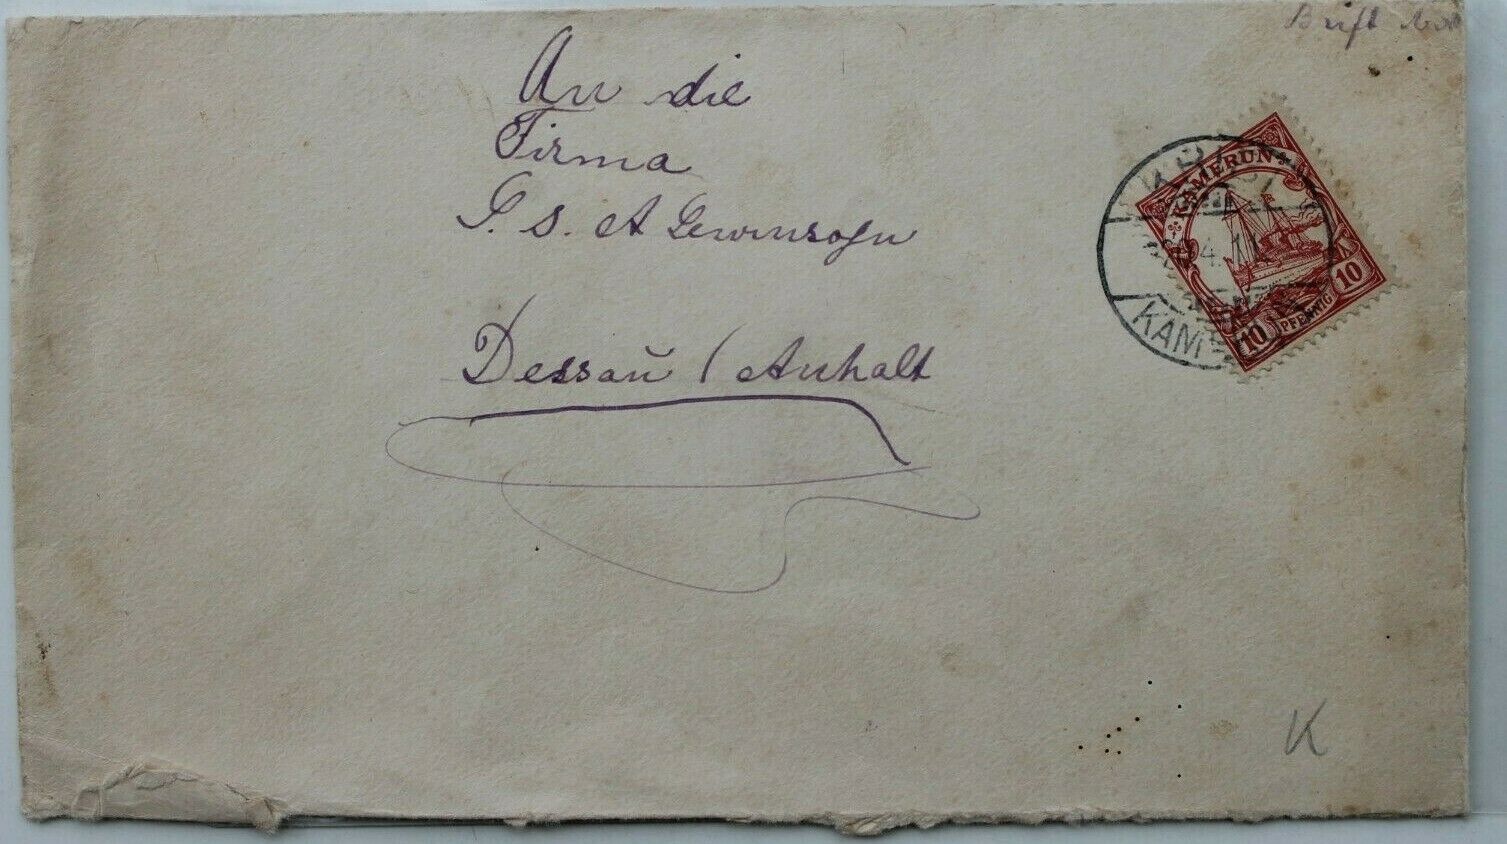 An die
Firma
S. A Lewinsohn
Dessaŭ / Anhalt
KAMERUN
10 PFENNIG 10
4. 11
KAM
K